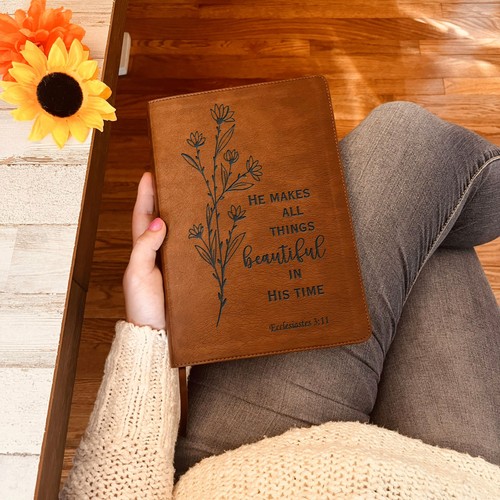 He makes
all
things
beautiful
in
His time
Ecclesiastes 3:11